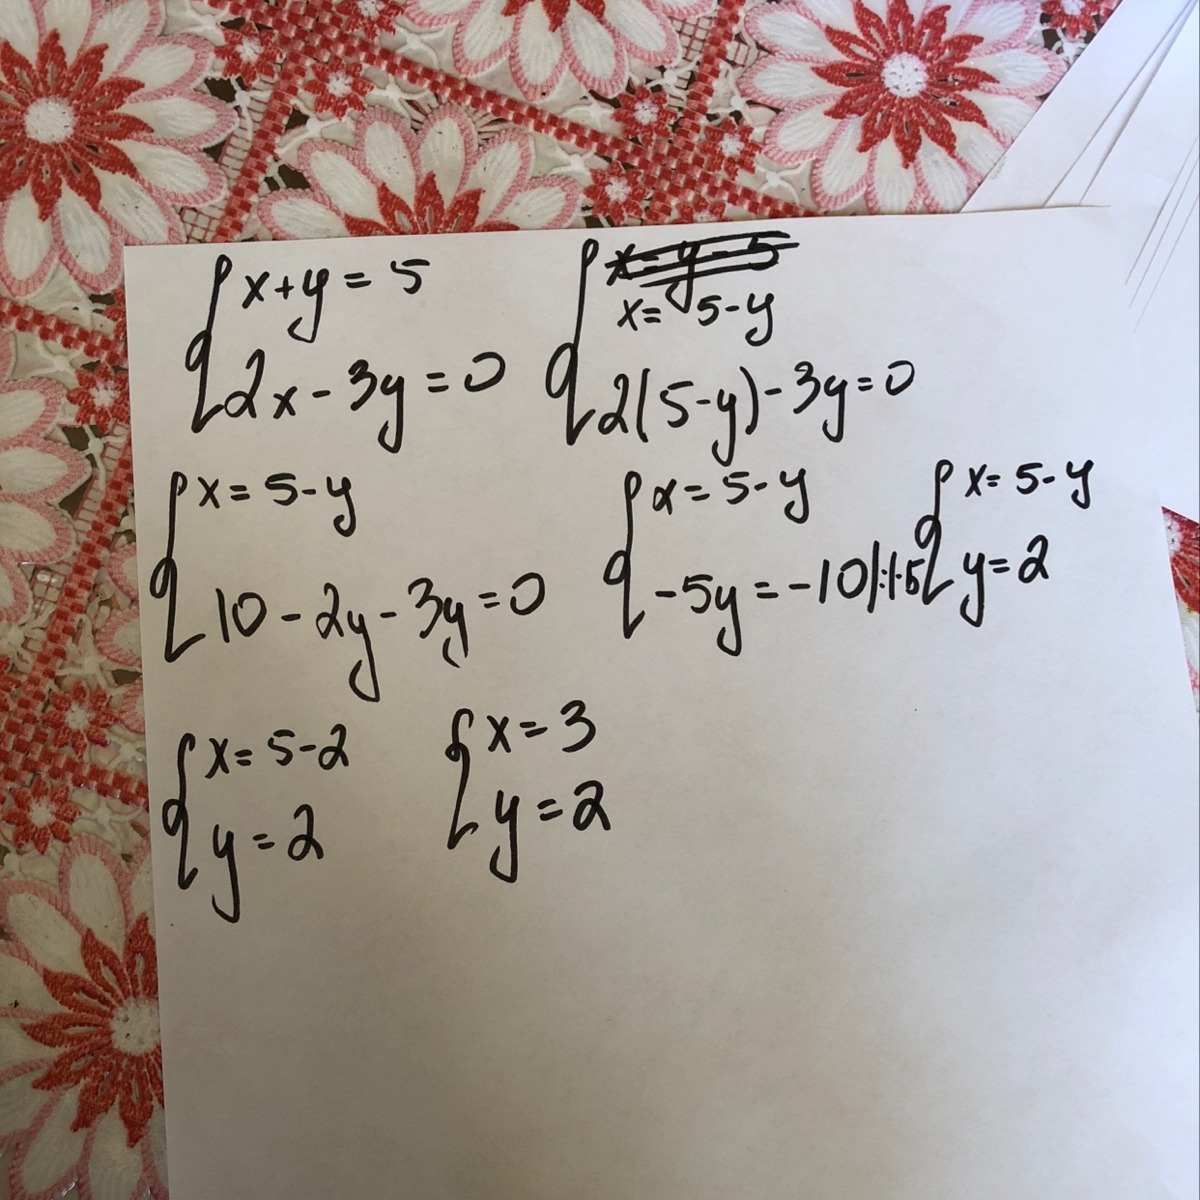 x+y=5
2x-3y=0
x=5-y
2(5-y)-3y=0
x=5-y
10-2y-3y=0
x=5-y
-5y=-10
x=5-y
y=2
x=5-2
y=2
x=3
y=2